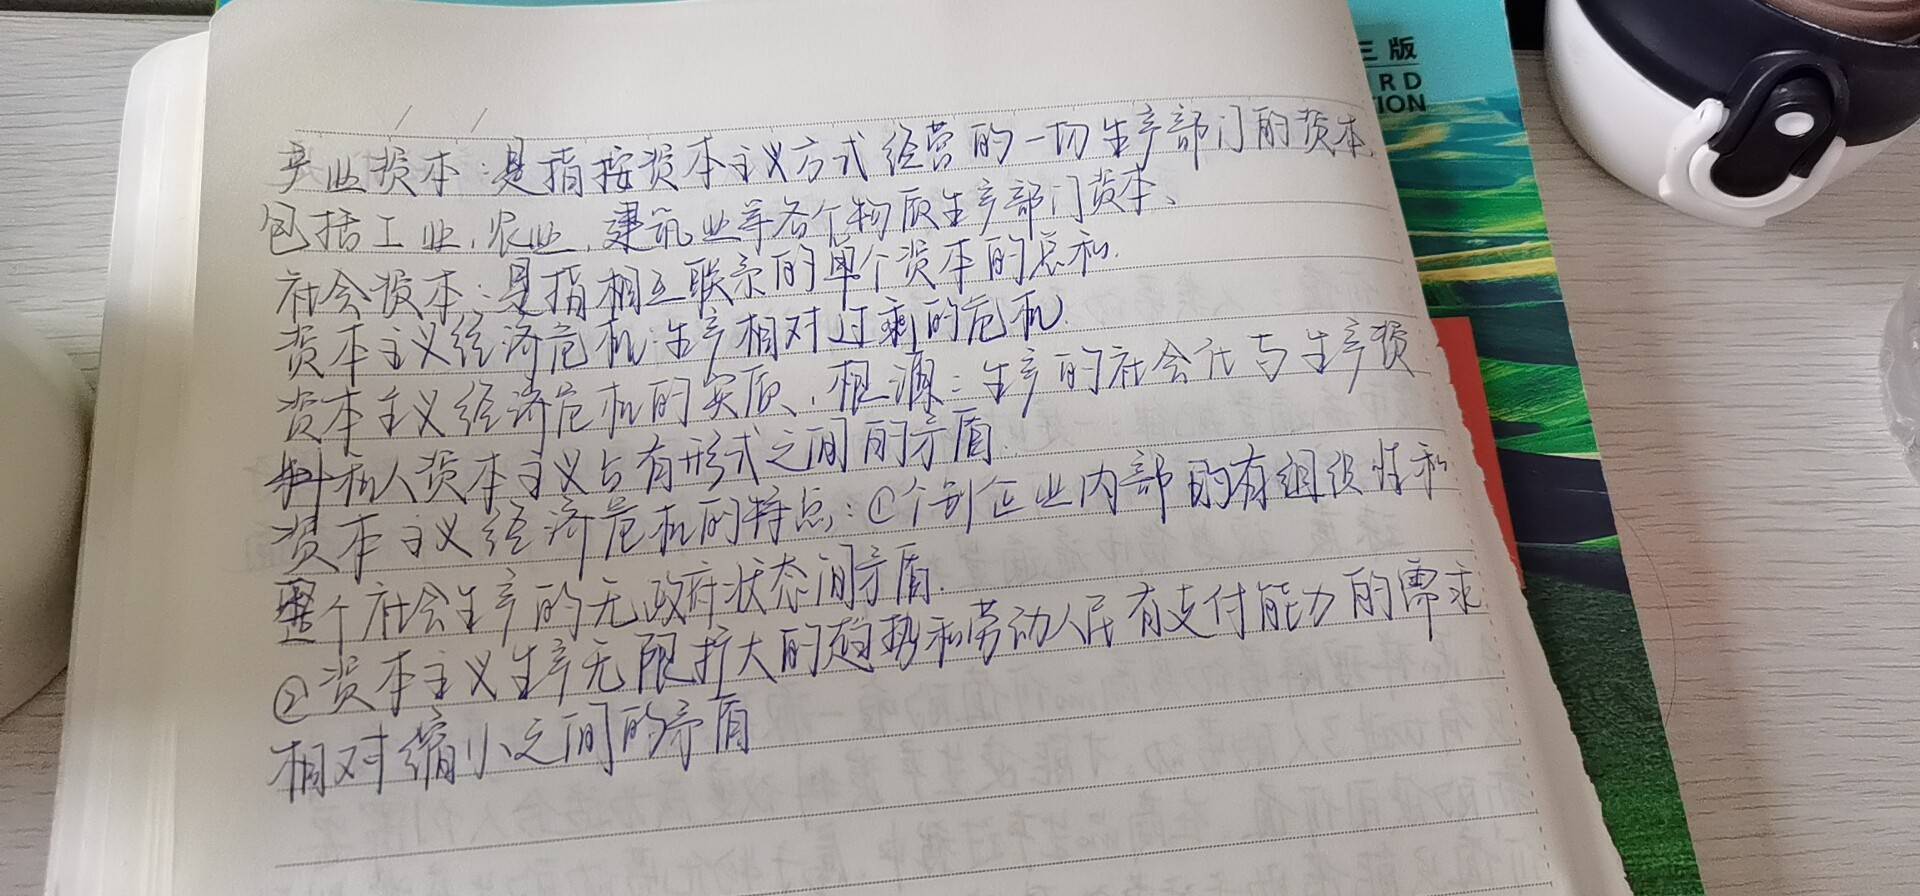 三版
RD
TION
产业资本:是指按资本主义方式经营的一切生产部门的资本,
包括工业,农业,建筑业等各个物质生产部门资本、
社会资本:是指相互联系的单个资本的总和.
资本主义经济危机:生产相对过剩的危机.
资本主义经济危机的实质、根源:生产的社会化与生产资
料私人资本主义占有形式之间的矛盾.
资本主义经济危机的特点:①个别企业内部的有组织性和
整个社会生产的无政府状态间矛盾.
②资本主义生产无限扩大的趋势和劳动人民有支付能力的需求
相对缩小之间的矛盾